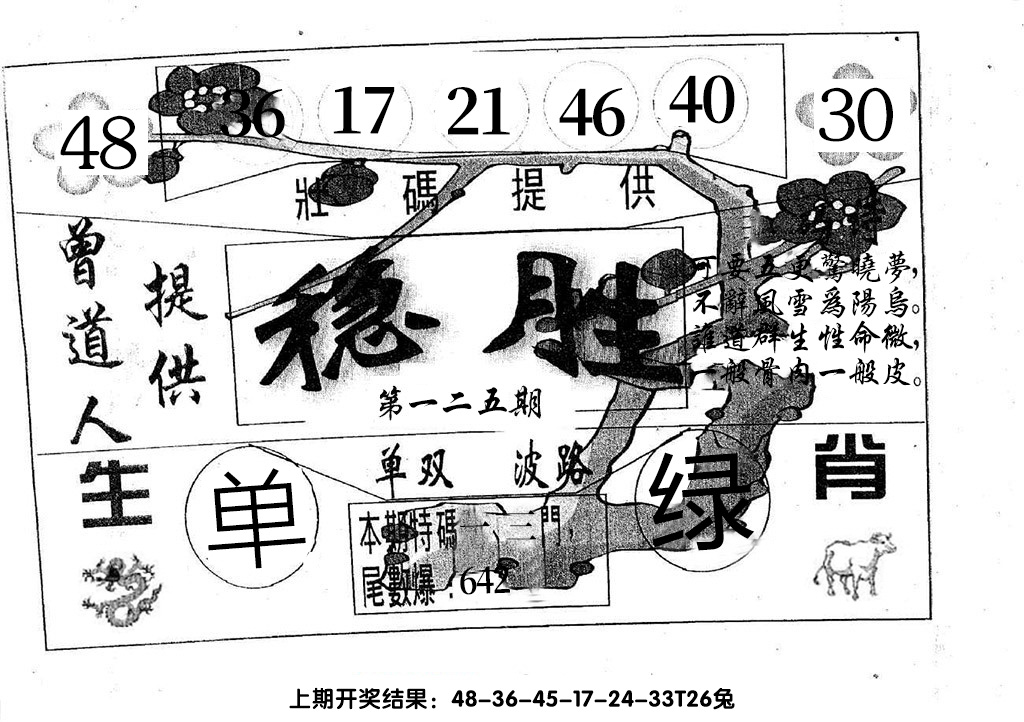 48 36 17 21 46 40 30
壯碼提供
特
曾道人
提供
稳胜
第一二五期
可要五更驚曉夢,
不辭風雪爲陽烏。
誰道群生性命微,
一般骨肉一般皮。
单双 波路
生肖
单
绿
本期特碼一、三門,
尾數爆:642
上期开奖结果：48-36-45-17-24-33T26兔